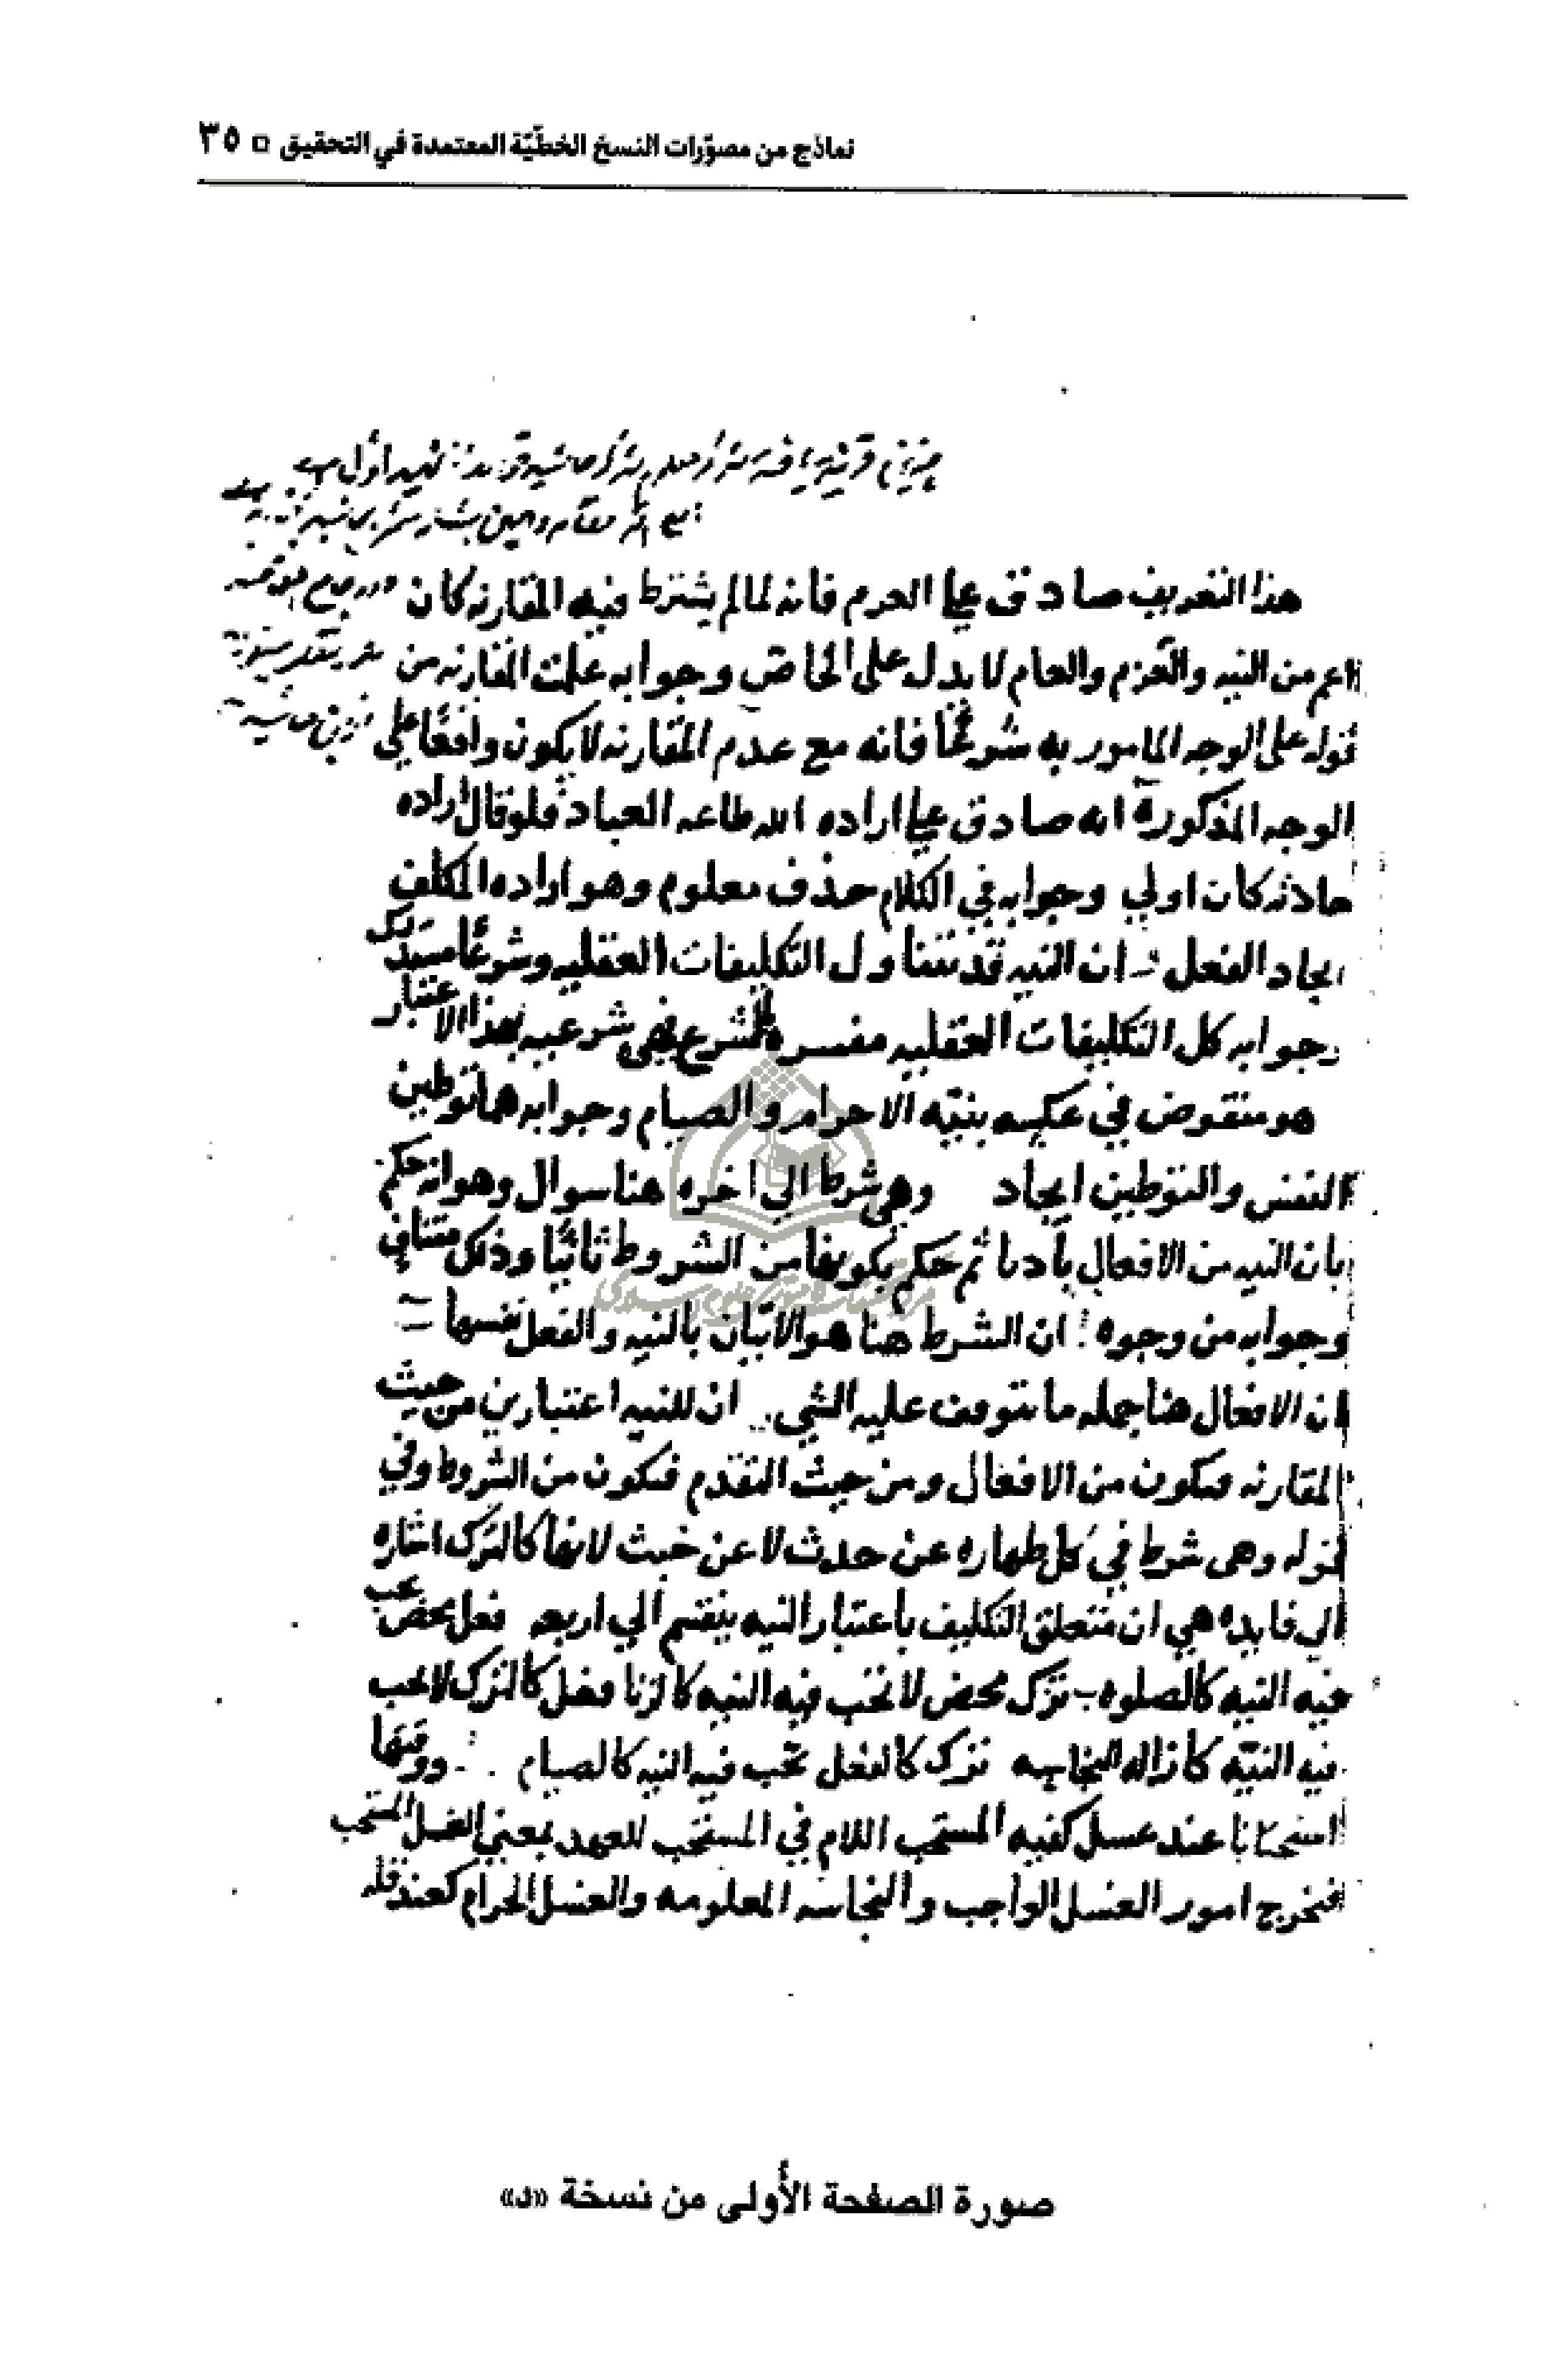 نماذج من مصوّرات النسخ الخطّيّة المعتمدة في التحقيق ▫ ٣٥
هذا التعريف صادق على العزم فانه لما لم يشترط فيه المقارنه كان
اعم من النيه والعزم والعام لا يدل على الخاص وجوابه علمت المقارنه من
قوله على الوجه المامور به شرعًا فانه مع عدم المقارنه لا يكون واقعًا على
الوجه المذكور انه صادق على اراده الله طاعه العباد فلو قال اراده
حادثه كان اولي وجوابه في الكلام حذف معلوم وهو اراده المكلف
ايجاد الفعل ان النيه قد تتناول التكليفات العقليه وشرعًا
وجوابه كل التكليفات العقليه مفسره للشرع فهي شرعيه بهذا الاعتبار
هو منقوض في عكسه بنيّه الاحرام والصيام وجوابه هما توطين
النفس والتوطين ايجاد وهي شرط الي اخره هنا سوال وهو انه حكم
بان النيه من الافعال بادیا ثم حكم بكونها من الشروط ثانيًا وذلك متناف
وجوابه من وجوه ان الشرط هنا هو الاتيان بالنيه والفعل نفسها
ان الافعال هنا جمله ما يتوقف عليه الشي ان للنيه اعتبارين من حيث
المقارنه فيكون من الافعال ومن حيث التقدم فيكون من الشروط وفي
قوله وهي شرط في كل طهاره عن حدث لا عن خبث لانها كالترك اشاره
الي فايده هي ان متعلق التكليف باعتبار النيه ينقسم الي اربعه فعل محض يجب
فيه النيه كالصلوه ب ترك محض لا تجب فيه النيه كالزنا فعل كالترك لا يجب
فيه النيّه كازاله النجاسه ترك كالفعل تجب فيه النيه كالصيام ووقتها
استحبابا عند غسل كفيه المستحب اللام في المستحب للعهد بمعني الغسل المستحب
فيخرج امور الغسل الواجب والنجاسه المعلومه والغسل الحرام كعند قله
صورة الصفحة الأولى من نسخة «د»